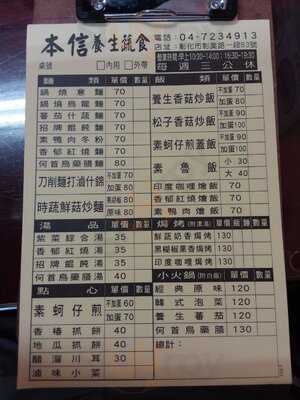 本信養生蔬食
電話：04-7234913
店址：彰化市彰美路一段83號
營業時間：早上10:30-14:00；16:30-19:30
每週三公休
桌號
□內用 □外帶
麵類 單價 數量
鍋燒意麵 70
鍋燒烏龍麵 70
蕃茄什蔬麵 70
招牌餛飩麵 70
素鴨肉冬粉 70
香郁紅燒麵 70
何首烏藥膳麵 80
刀削麵打滷什錦 不加蛋 70
加蛋 80
時蔬鮮菇炒麵 80
原味 80
飯類 單價 數量
養生香菇炒飯 不加蛋 70
加蛋 80
松子香菇炒飯 不加蛋 90
加蛋 100
素蚵仔煎蓋飯 不加蛋 80
加蛋 90
素魯飯 小 30
大 40
印度咖哩燴飯 70
香郁紅燒燴飯 70
素鴨肉燴飯 70
湯品 單價 數量
紫菜綜合湯 35
香郁紅燒湯 35
招牌餛飩湯 35
何首烏藥膳湯 45
焗烤 單價 飯 麵 數量
鮮蔬奶香焗烤 130
黑椒椒菓香焗烤 130
印度咖哩焗烤 130
點心 單價 數量
素蚵仔煎 不加蛋 60
加蛋 70
香椿抓餅 40
地瓜抓餅 40
醋溜川耳 30
滷味小菜
小火鍋(附白飯) 單價 數量
經典原味 120
韓式泡菜 120
養生蕃茄 120
何首烏藥膳 130
總計：